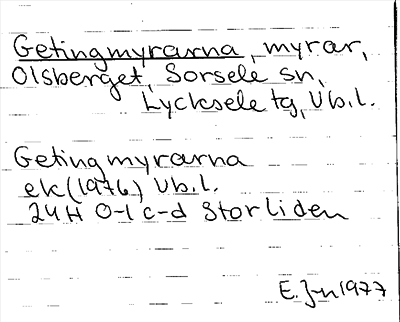 Getingmyrarna, myrar,
Olsberget, Sorsele sn,
Lycksele tg, Vb.l.
Getingmyrarna
ek (1976) Vb.l.
24H 0-1 c-d Storliden
E. J-n 1977